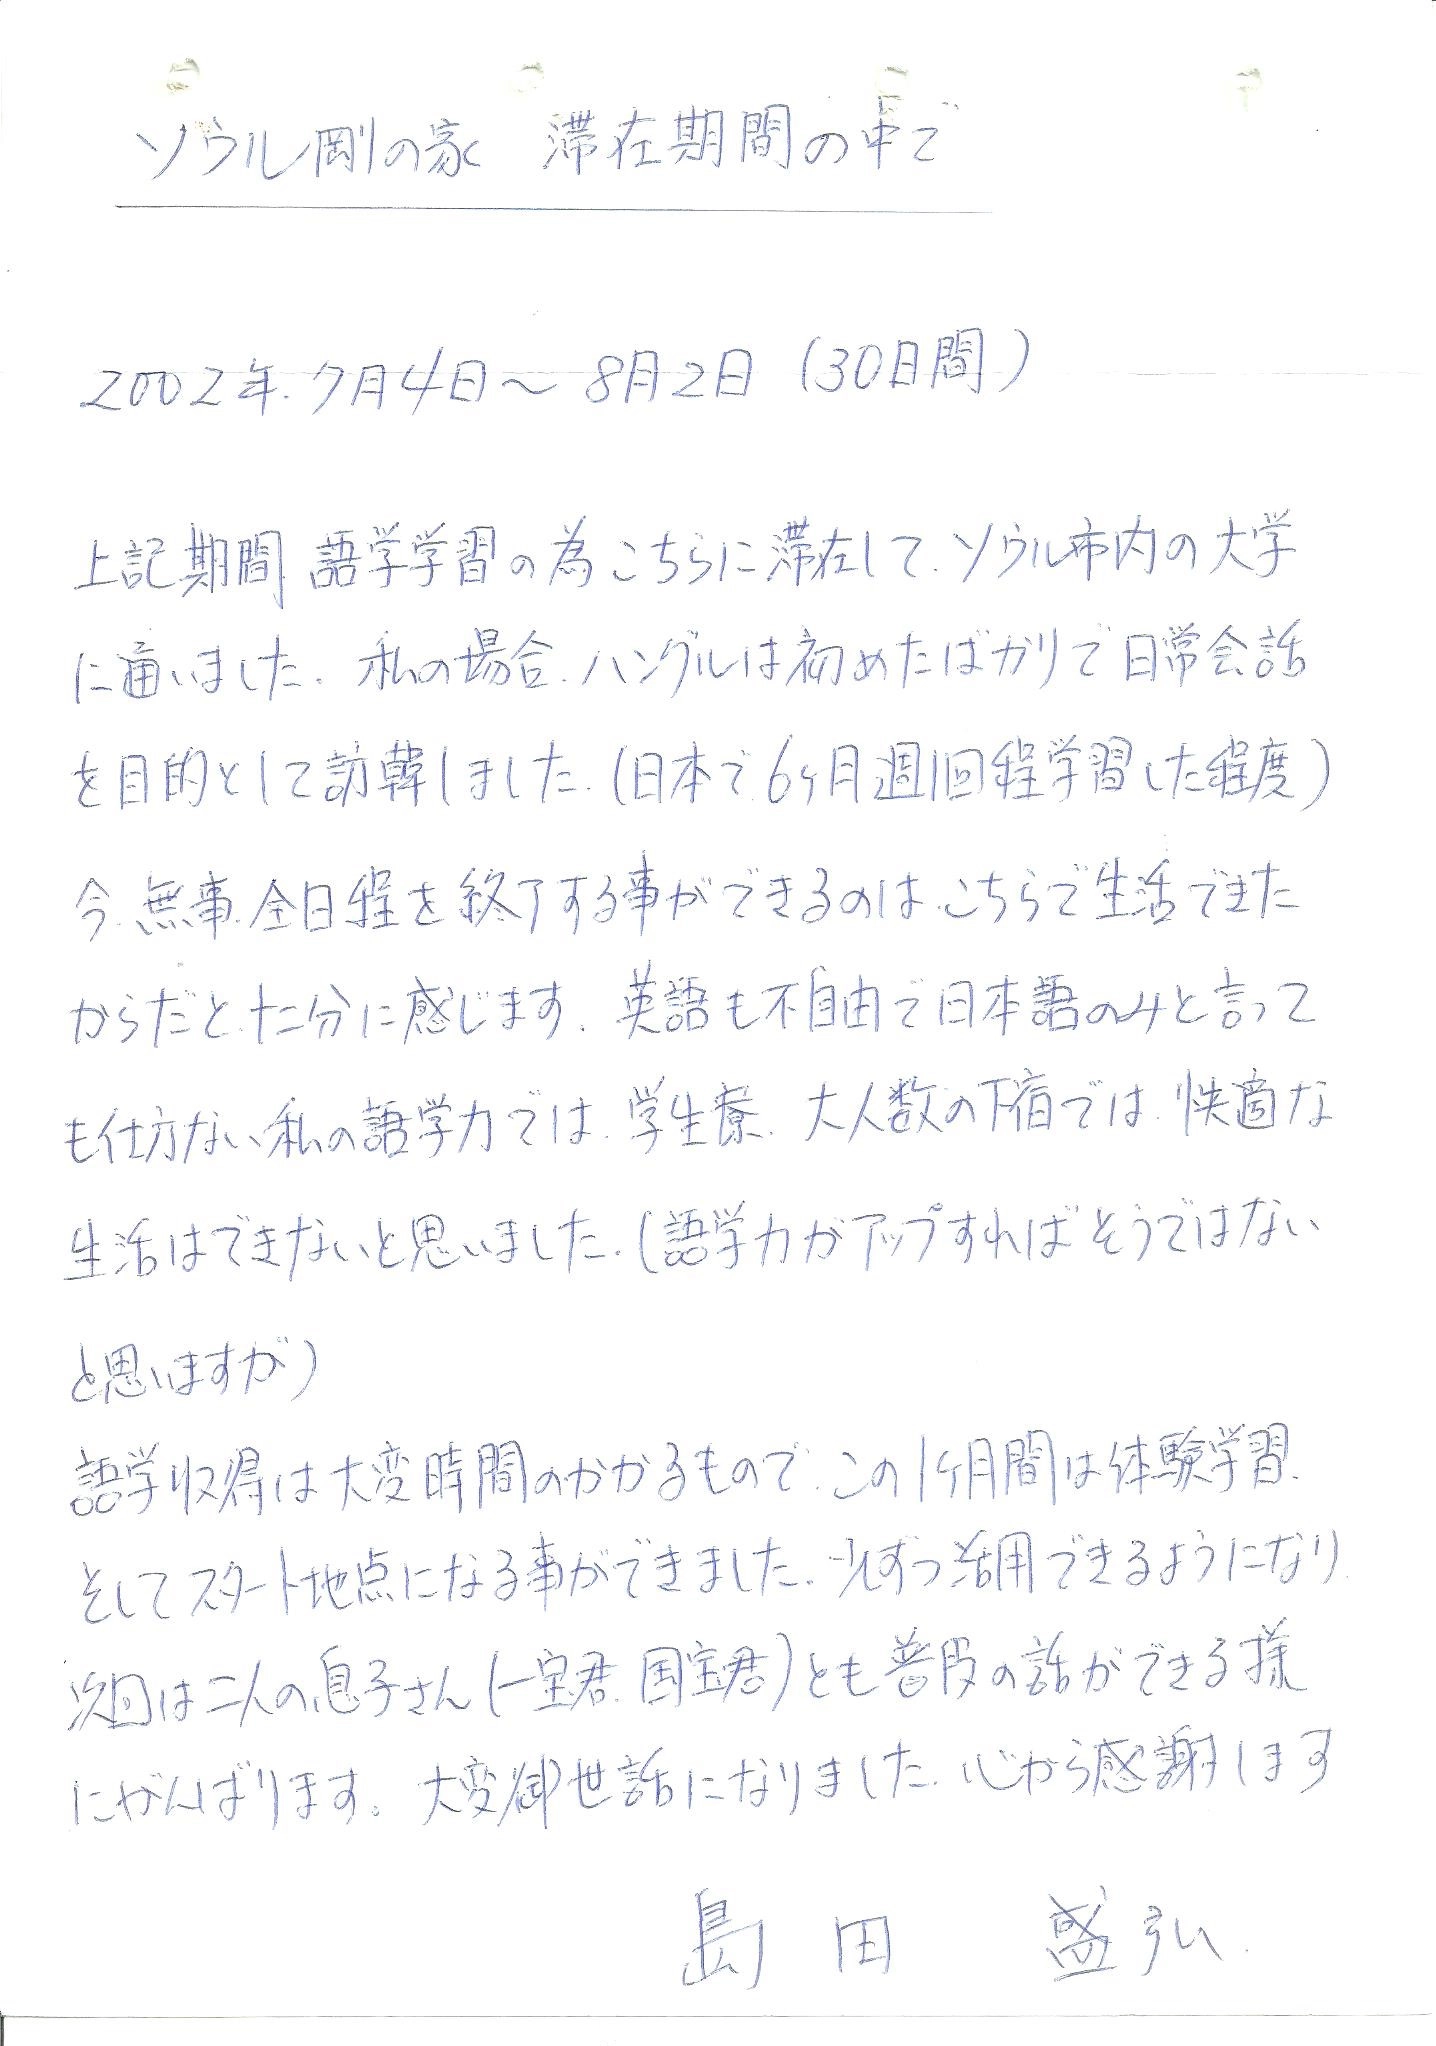 ソウル剛の家 滞在期間の中で
2002年.7月4日〜8月2日(30日間)
上記期間 語学学習の為こちらに滞在して、ソウル市内の大学
に通いました。私の場合、ハングルは初めたばかりで日常会話
を目的として訪韓しました。(日本で、6ヶ月週1回程学習した程度)
今、無事、全日程を終了する事ができるのは、こちらで生活できた
からだと、十二分に感じます。英語も不自由で日本語のみと言って
も仕方ない私の語学力では、学生寮、大人数の下宿では、快適な
生活はできないと思いました。(語学力がアップすればそうではない
と思いますが)
語学収得は大変時間のかかるもので、この1ヶ月間は体験学習、
そしてスタート地点になる事ができました。少しずつ活用できるようになり、
次回は二人の息子さん(一宝君、国宝君)とも普段の話ができる様
にがんばります。大変御世話になりました。心から感謝します
島田 盛弘